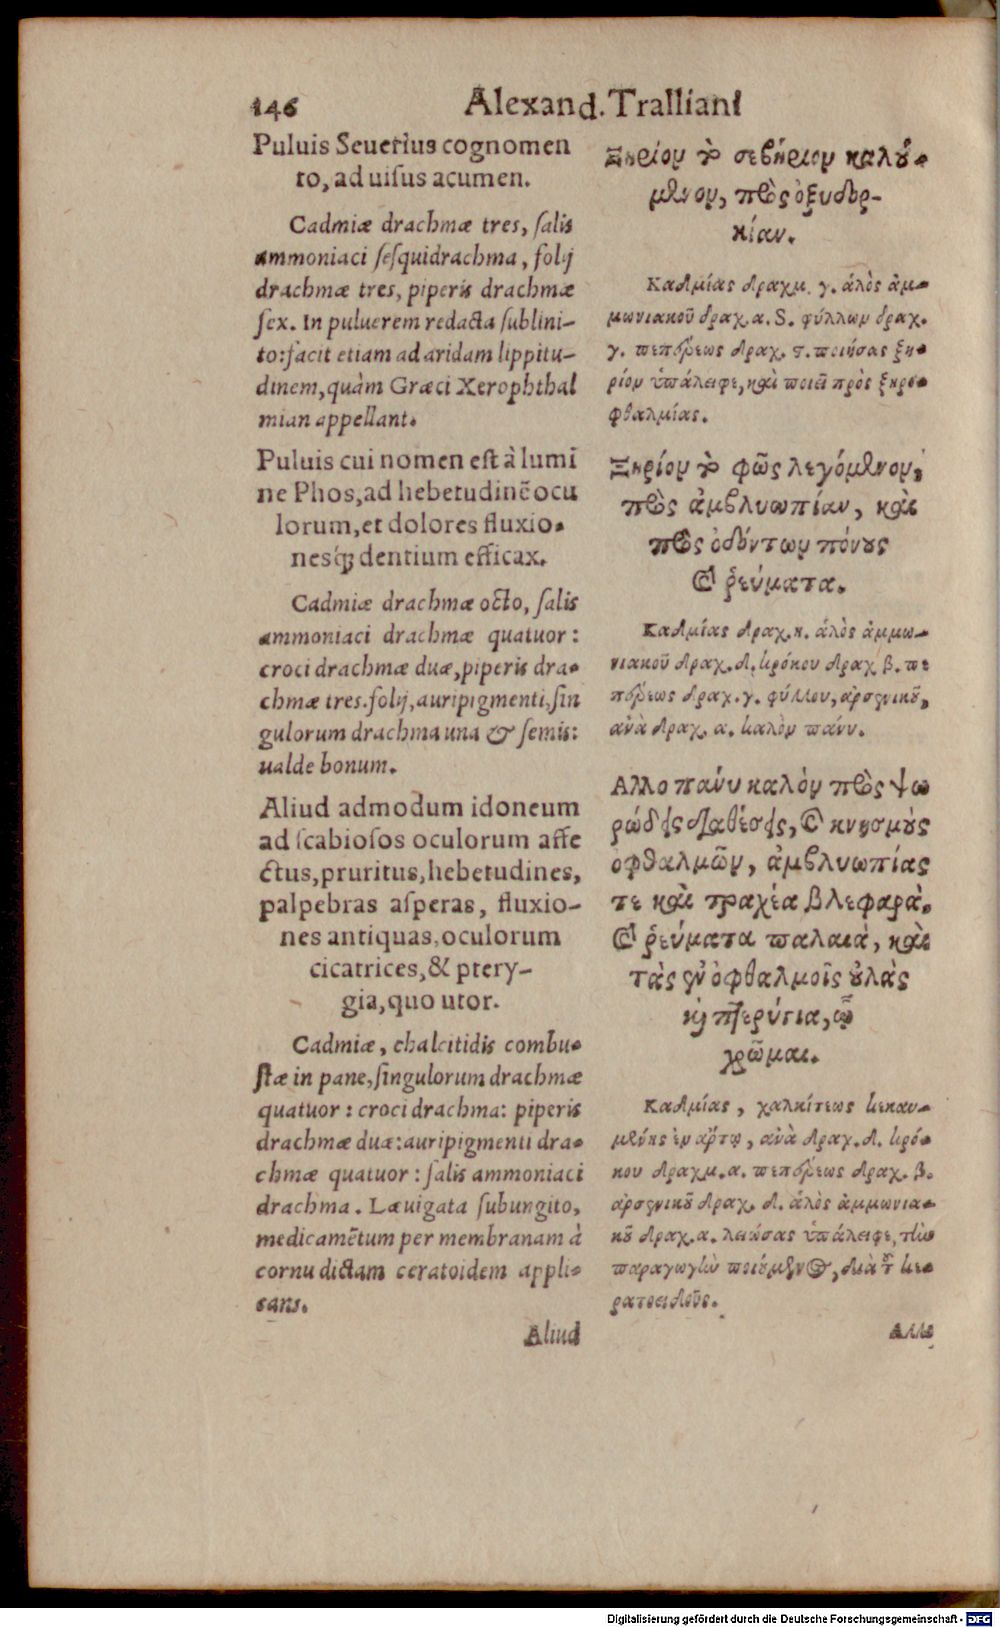 146 Alexand. Tralliani
Puluis Seuerius cognomen
to, ad uisus acumen.
Cadmiæ drachmæ tres, ſalis
ammoniaci ſeſquidrachma, folij
drachmæ tres, piperis drachmæ
ſex. In puluerem redacta ſublini-
to: facit etiam ad aridam lippitu-
dinem, quàm Græci Xerophthal
mian appellant.
Puluis cui nomen eſt à lumi
ne Phos, ad hebetudinē ocu
lorum, et dolores fluxio-
nesq́; dentium efficax.
Cadmiæ drachmæ octo, ſalis
ammoniaci drachmæ quatuor:
croci drachmæ duæ, piperis dra-
chmæ tres. folij, auripigmenti, ſin
gulorum drachma una & ſemis:
ualde bonum.
Aliud admodum idoneum
ad ſcabioſos oculorum affe
ctus, pruritus, hebetudines,
palpebras aſperas, fluxio-
nes antiquas, oculorum
cicatrices, & ptery-
gia, quo utor.
Cadmiæ, chalcitidis combu-
ſtæ in pane, ſingulorum drachmæ
quatuor: croci drachma: piperis
drachmæ duæ: auripigmenti dra-
chmæ quatuor: ſalis ammoniaci
drachma. Læuigata ſubungito,
medicamētum per membranam à
cornu dictam ceratoidem appli-
cans.
Aliud
Ξηρίον τὸ σεβήριον καλού-
μενον, πρὸς ὀξυδορ-
κίαν.
Καδμίας δραχμ. γ. ἁλὸς ἀμ-
μωνιακοῦ δραχ. α. S. φύλλων δραχ.
γ. πεπέρεως δραχ. ς. ποιήσας ξη-
ρίον ὑπάλειφε, καὶ ποιεῖ πρὸς ξηρο-
φθαλμίας.
Ξηρίον τὸ φῶς λεγόμενον,
πρὸς ἀμβλυωπίαν, καὶ
πρὸς ὀδόντων πόνους
καὶ ῥεύματα.
Καδμίας δραχ. η. ἁλὸς ἀμμω-
νιακοῦ δραχ. δ. κρόκου δραχ β. πε
πέρεως δραχ. γ. φύλλου, ἀρσενικοῦ,
ἀνὰ δραχ. α. καλὸν πάνυ.
Αλλο πάνυ καλὸν πρὸς ψω
ρώδεις διαθέσεις, καὶ κνησμοὺς
ὀφθαλμῶν, ἀμβλυωπίας
τε καὶ τραχέα βλεφαρὰ,
καὶ ῥεύματα παλαιὰ, καὶ
τὰς ἐν ὀφθαλμοῖς οὐλὰς
καὶ πτερύγια, ᾧ
χρῶμαι.
Καδμίας, χαλκίτεως κεκαυ-
μένης ἐν ἄρτῳ, ἀνὰ δραχ. δ. κρό-
κου δραχμ. α. πεπέρεως δραχ. β.
ἀρσενικοῦ δραχ. δ. ἁλὸς ἀμμωνια-
κοῦ δραχ. α. λειώσας ὑπάλειφε, τὴν
παραγωγὴν ποιούμενος, διὰ τοῦ κε-
ρατοειδοῦς.
Αλλο
Digitalisierung gefördert durch die Deutsche Forschungsgemeinschaft - DFG